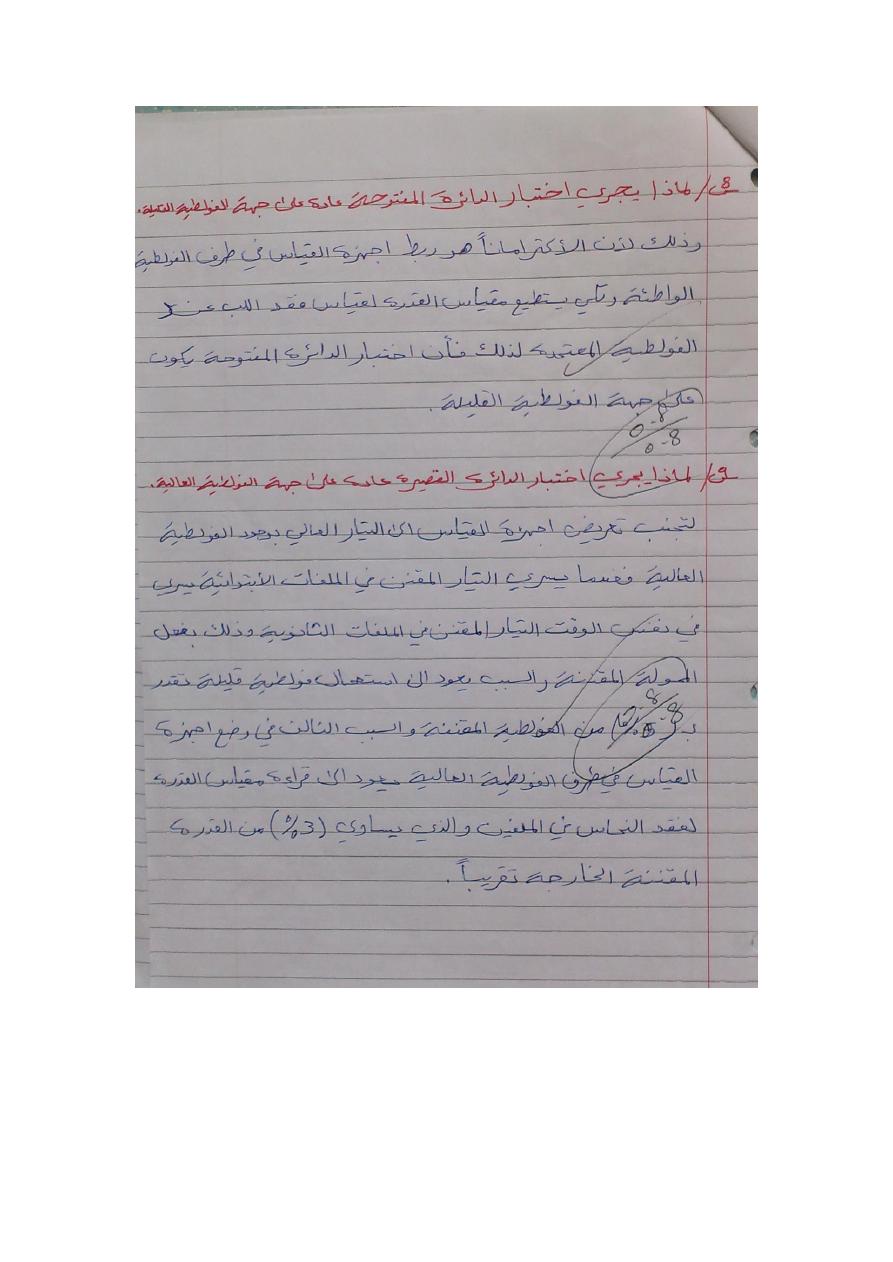 س/ لماذا يجري اختبار الدائرة المفتوحة عادة على جهة الفولطية القليلة.
وذلك لأن الأكثر اماناً هو ربط اجهزة القياس في طرف الفولطية
الواطئة ولكي يستطيع مقياس القدرة لقياس فقد اللب عند
الفولطية المعتمدة لذلك فأن اختبار الدائرة المفتوحة يكون
على جهة الفولطية القليلة.
0-8
0-8
س/ لماذا يجري اختبار الدائرة القصيرة عادة على جهة الفولطية العالية.
لتجنب تعريض اجهزة القياس الى التيار العالي بوجود الفولطية
العالية فعندما يسري التيار المقنن في الملفات الأبتدائية يسري
في نفس الوقت التيار المقنن في الملفات الثانوية وذلك بفعل
المحولة المقننة والسبب يعود الى استعمال فولطية قليلة تقدر
بـ من الفولطية المقننة والسبب الثالث في وضع اجهزة
القياس في طرف الفولطية العالية يعود الى قراءة مقياس القدرة
لفقد النحاس في الملفين والذي يساوي (3%) من القدرة
المقننة الخارجة تقريباً.